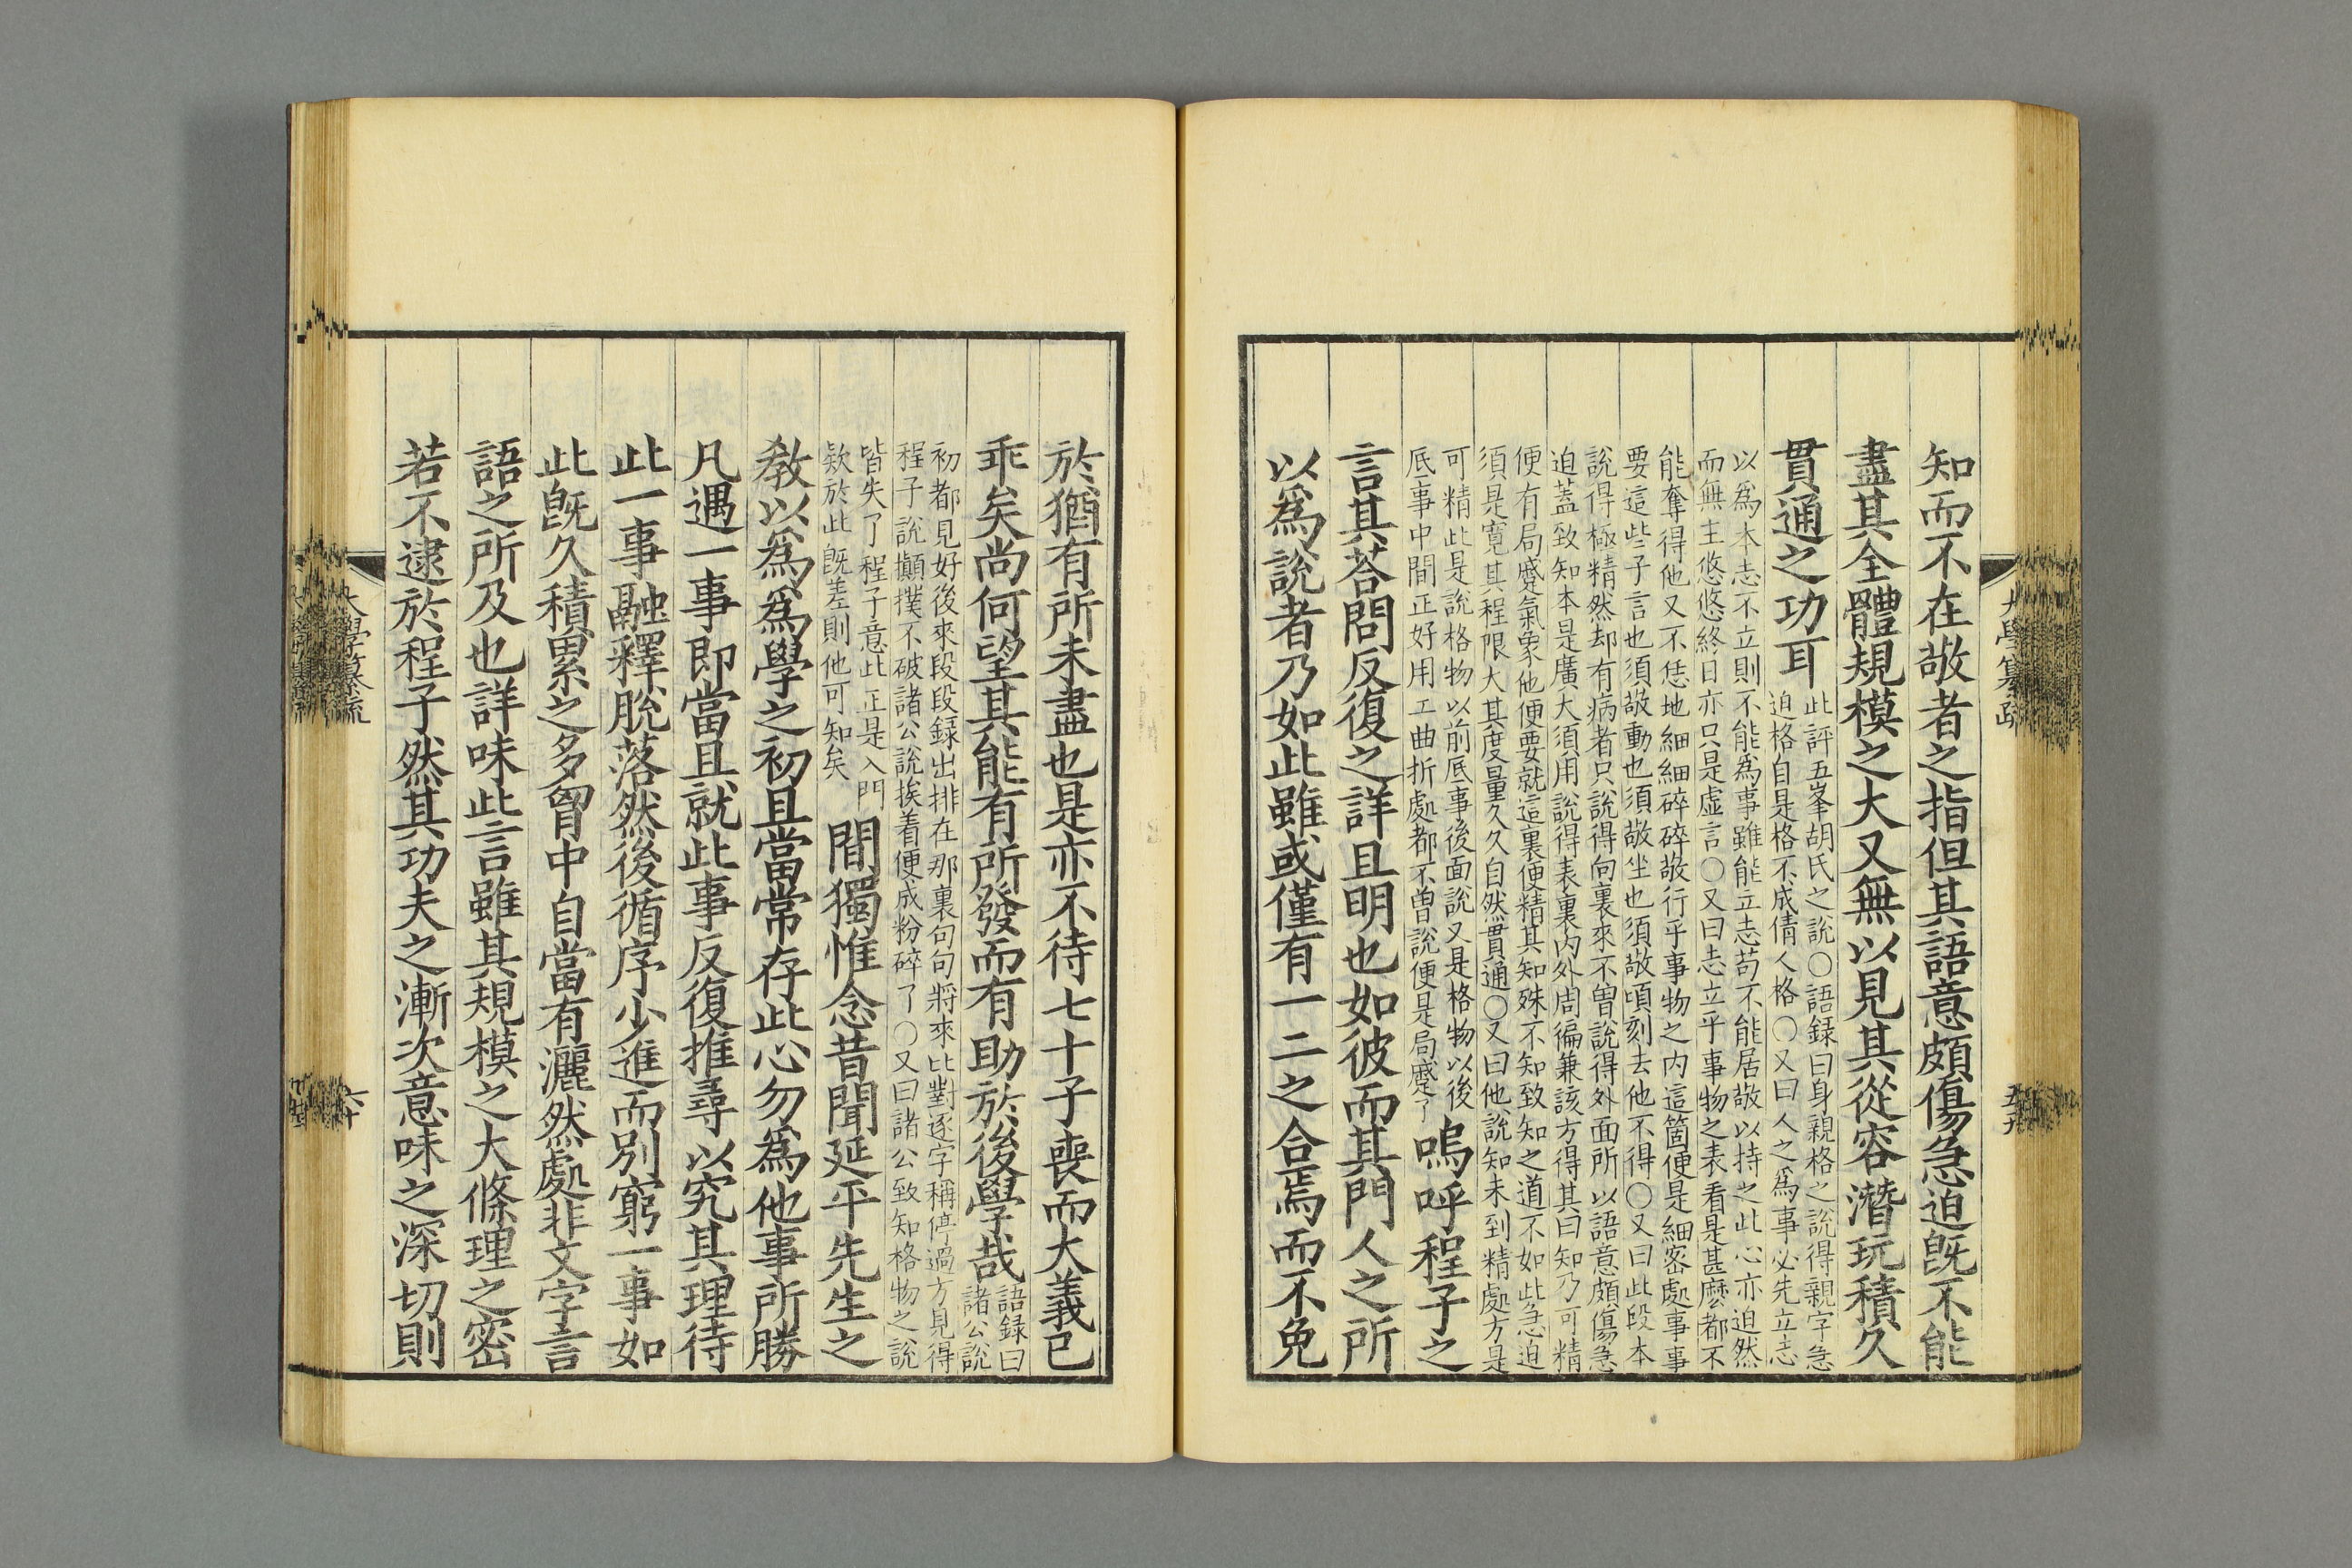 知而不在敬者之指但其語意頗傷急迫旣不能
盡其全體規模之大又無以見其從容潛玩積久
貫通之功耳
此評五峯胡氏之說〇語録曰身親格之說得親字急
迫格自是格不成倩人格〇又曰人之爲事必先立志
以爲本志不立則不能爲事雖能立志苟不能居敬以持之此心亦迫然
而無主悠悠終日亦只是虛言〇又曰志立乎事物之表看是甚麽都不
能奪得他又不恁地細細碎碎敬行乎事物之内這箇便是細密處事事
要這些子言也須敬動也須敬坐也須敬頃刻去他不得〇又曰此段本
說得極精然却有病者只說得向裏來不曾說得外面所以語意頗傷急
迫蓋致知本是廣大須用說得表裏内外周徧兼該方得其曰知乃可精
便有局蹙氣象他便要就這裏便精其知殊不知致知之道不如此急迫
須是寬其程限大其度量久久自然貫通〇又曰他說知未到精處方是
可精此是說格物以前底事後面說又是格物以後
底事中間正好用工曲折處都不曾說便是局蹙了
嗚呼程子之
言其荅問反復之詳且明也如彼而其門人之所
以爲說者乃如此雖或僅有一二之合焉而不免
大學纂疏
五九
於猶有所未盡也是亦不待七十子喪而大義已
乖矣尚何望其能有所發而有助於後學哉
語録曰
諸公說
初都見好後來段段録出排在那裏句句將來比對逐字稱停過方見得
程子說顚撲不破諸公說挨着便成粉碎了〇又曰諸公致知格物之說
皆失了程子意此正是入門
欵於此旣差則他可知矣
間獨惟念昔聞延平先生之
敎以爲爲學之初且當常存此心勿爲他事所勝
凡遇一事即當且就此事反復推尋以究其理待
此一事融釋脫落然後循序少進而別窮一事如
此旣久積累之多胷中自當有灑然處非文字言
語之所及也詳味此言雖其規模之大條理之密
若不逮於程子然其功夫之漸次意味之深切則
大學纂疏
六十